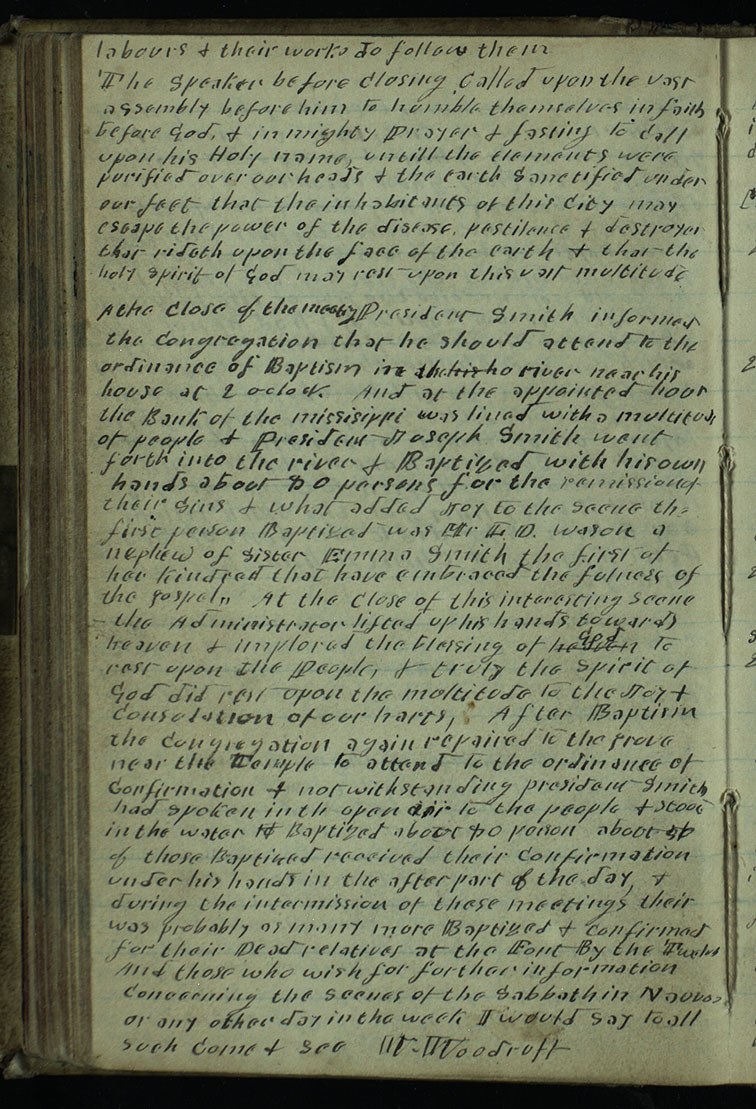 labours & their works do follow them
The Speaker before closing Called upon the vast
assembly before him to humble themselves in faith
before God, & in mighty Prayer & fasting to Call
upon his Holy name, untill the elements were
purified over our heads & the earth Sanctified under
our feet that the inhabitants of this City may
escape the power of the disease, pestilence & destroyer
that rideth upon the face of the earth & that the
holy spirit of God may rest upon this vast multitude
At the Close of the meeting President Smith informed
the Congregation that he should attend to the
ordinance of Baptism in the river near his
house at 2 oclock. And at the appointed hour
the Bank of the missisippi was lined with a multitude
of people & President Joseph Smith went
forth into the river & Baptized with his own
hands about 80 persons for the remission of
their Sins & what added Joy to the Scene the
first person Baptized was Mr L. D. Wason a
nephew of Sister Emma Smith the first of
her Kindred that have embraced the fulness of
the gospel,, At the Close of this interesting Scene
the Administrator lifted up his hands towards
heaven & implored the blessing of God to
rest upon the People, & truly the Spirit of
God did rest upon the multitude to the Joy &
Consolation of our harts, After Baptism
the Congregation again repaired to the grove
near the Temple to attend to the ordinance of
Confirmation & notwithstanding president Smith
had spoken in the open air to the people & stood
in the water & Baptized about 80 person about 50
of those Baptized received their Confirmation
under his hands in the after part of the day, &
during the intermission of these meetings their
was probably as many more Baptized & Confirmed
for their Dead relatives at the Font By the Twelve
And those who wish for further information
Concerning the Scenes of the Sabbath in Nauvoo
or any other day in the week I would say to all
such Come & See W. Woodruff